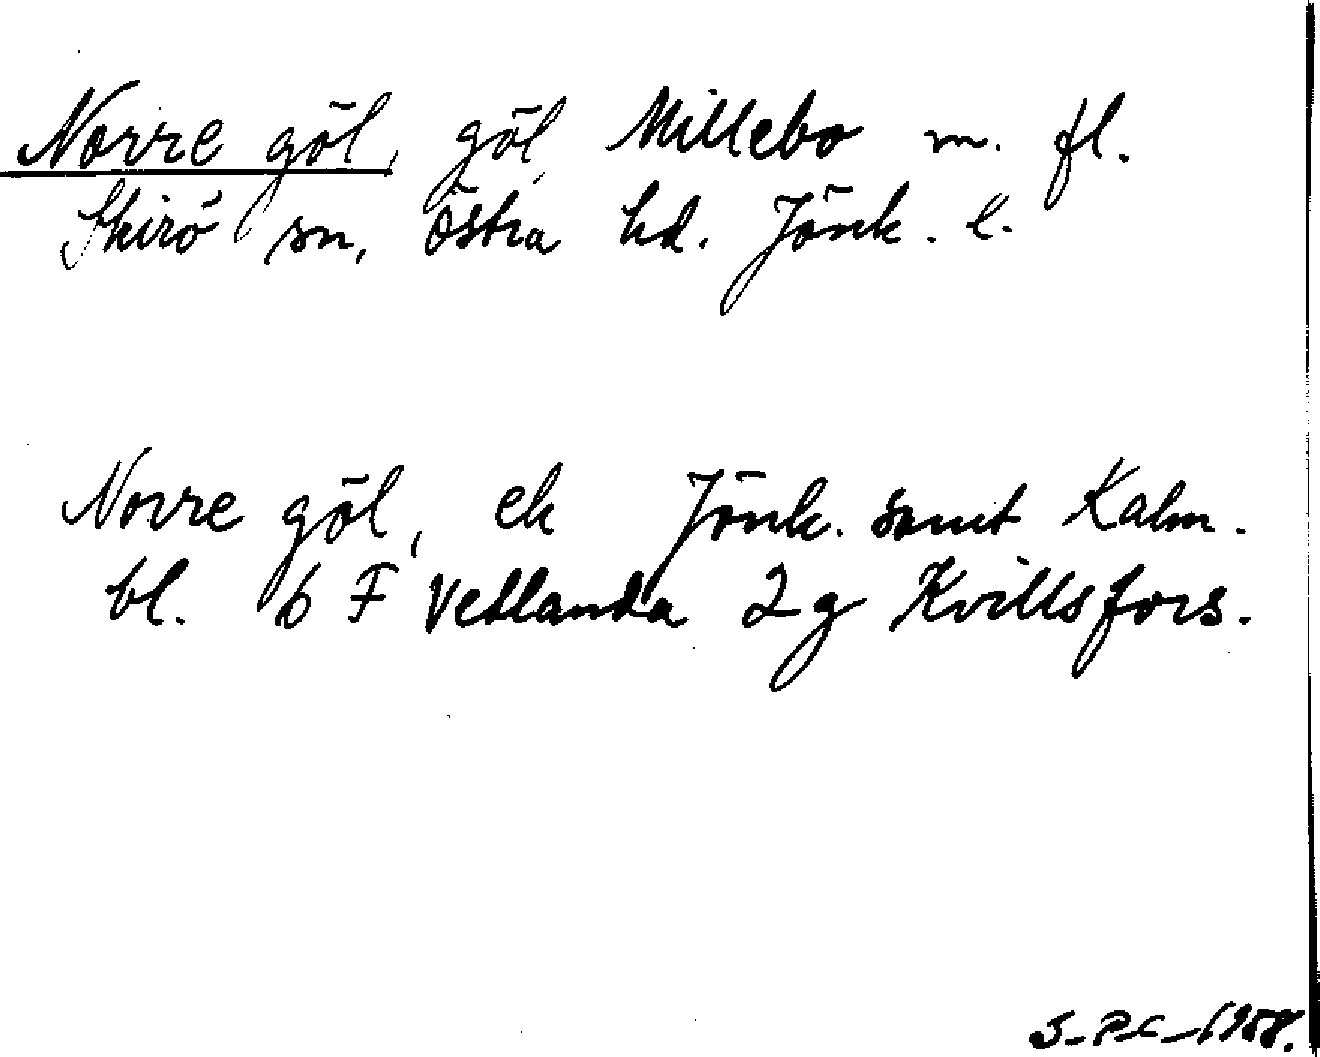 Norre göl, göl, Millebo m. fl.
Skirö sn, Östra hd. Jönk. l.
Norre göl, ek Jönk. samt Kalm.
bl. 6 F Vetlanda 2 g Kvillsfors.
1958.